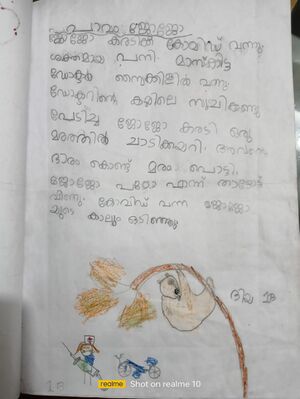 പാവം ജോജോ
ജോജോ കരടിക്ക് കോവിഡ് വന്നു.
ശക്തമായ പനി. മാസ്ക്കിട്ട
ഡോക്ടർ സൈക്കിളിൽ വന്നു.
ഡോക്ടറിന്റെ കയ്യിലെ സൂചികണ്ടു
പേടിച്ച ജോജോ കരടി ഒരു
മരത്തിൽ ചാടിക്കയറി. അവന്റെ
ഭാരം കൊണ്ട് മരം പൊട്ടി.
ജോജോ പഠോ എന്ന് താഴോട്ട്
വീണു. കോവിഡ് വന്ന ജോജോ
യുടെ കാലും ഒടിഞ്ഞു.
ദിയ 1B
1B
realme Shot on realme 10